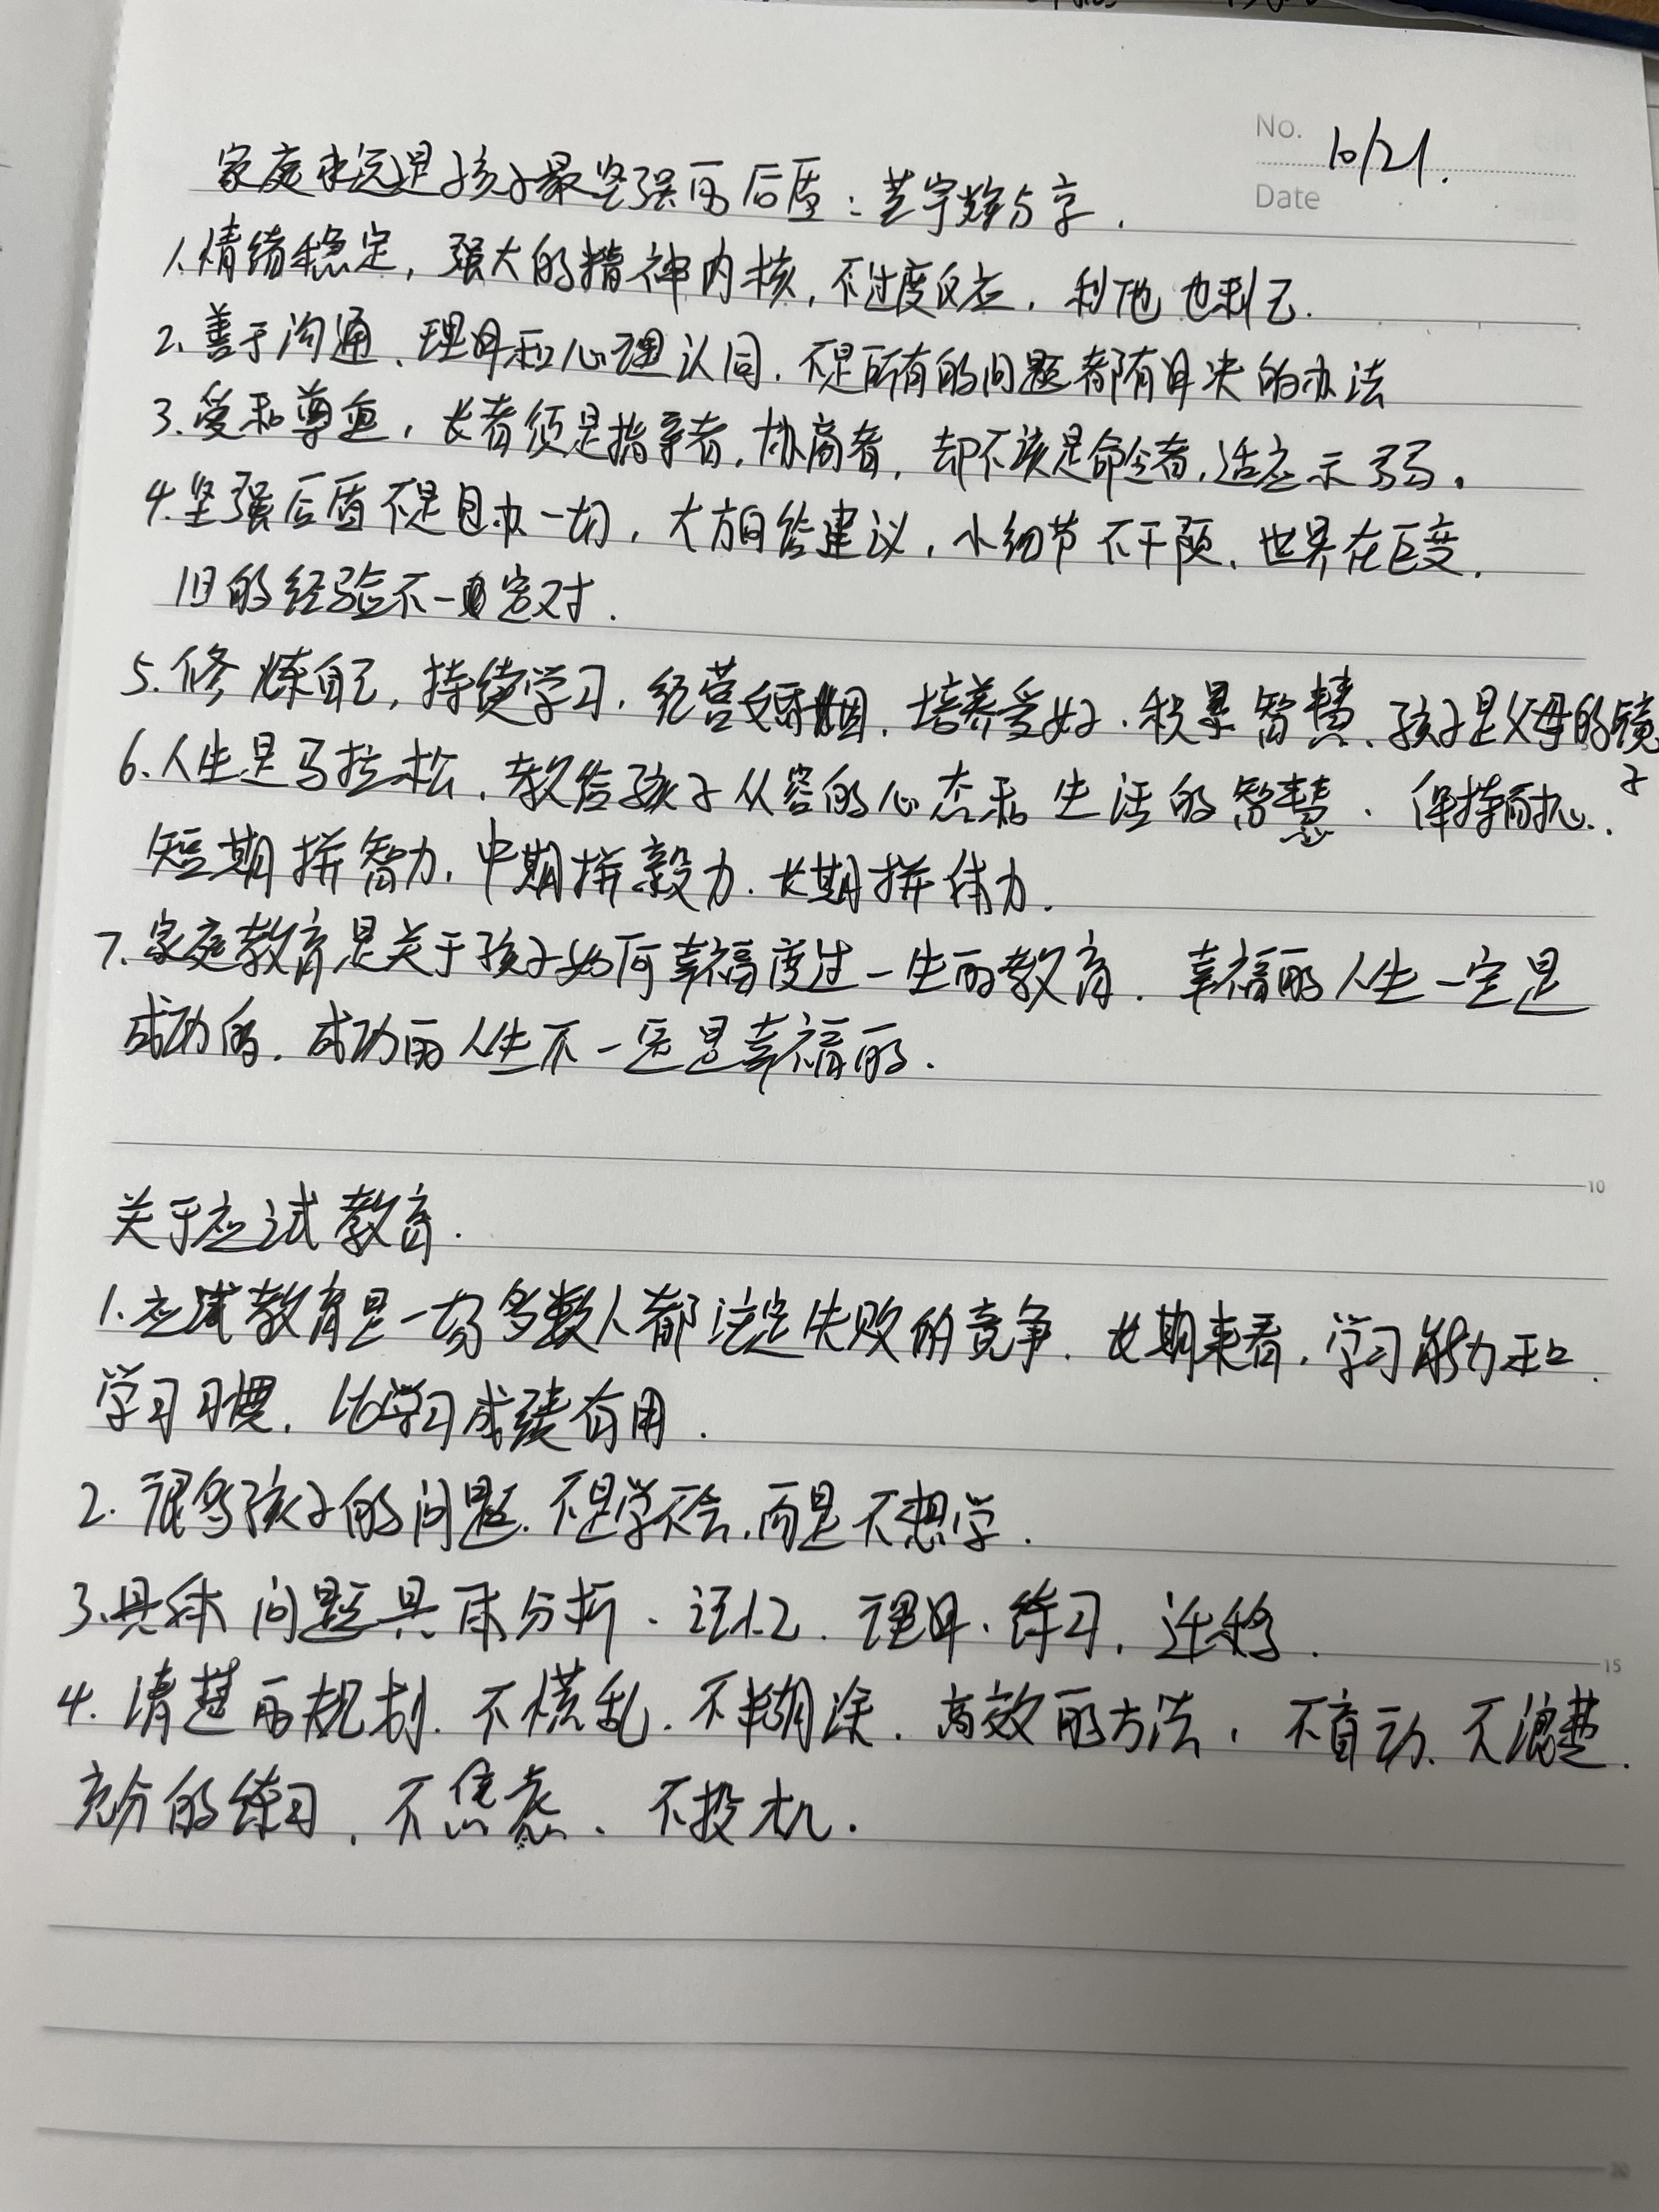 No. 10/21.
Date
家庭永远是孩子最坚强的后盾：芝宇辉分享.
1.情绪稳定，强大的精神内核，不过度反应，利他也利己.
2.善于沟通、理解和心理认同.不是所有的问题都有解决的办法
3.爱和尊重，长者须是指导者，协商者，却不该是命令者，适应示弱。
4.坚强后盾不是包办一切，大方向给建议，小细节不干预.世界在巨变.
旧的经验不一定对.
5.修炼自己，持续学习.经营婚姻.培养爱好.积累智慧.孩子是父母的镜子
6.人生是马拉松，教给孩子从容的心态和生活的智慧.保持耐心.
短期拼智力.中期拼毅力.长期拼体力.
7.家庭教育是关于孩子如何幸福度过一生的教育.幸福的人生一定是
成功的.成功的人生不一定是幸福的.
10
关于应试教育.
1.应试教育是一场多数人都注定失败的竞争.长期来看，学习能力和
学习习惯，比学习成绩有用.
2.很多孩子的问题.不是学不会，而是不想学.
3.具体问题具体分析.记忆.理解.练习.迁移.
15
4.清楚的规划.不慌乱.不糊涂.高效的方法，不盲动.不浪费.
充分的练习，不焦虑、不投机.
20